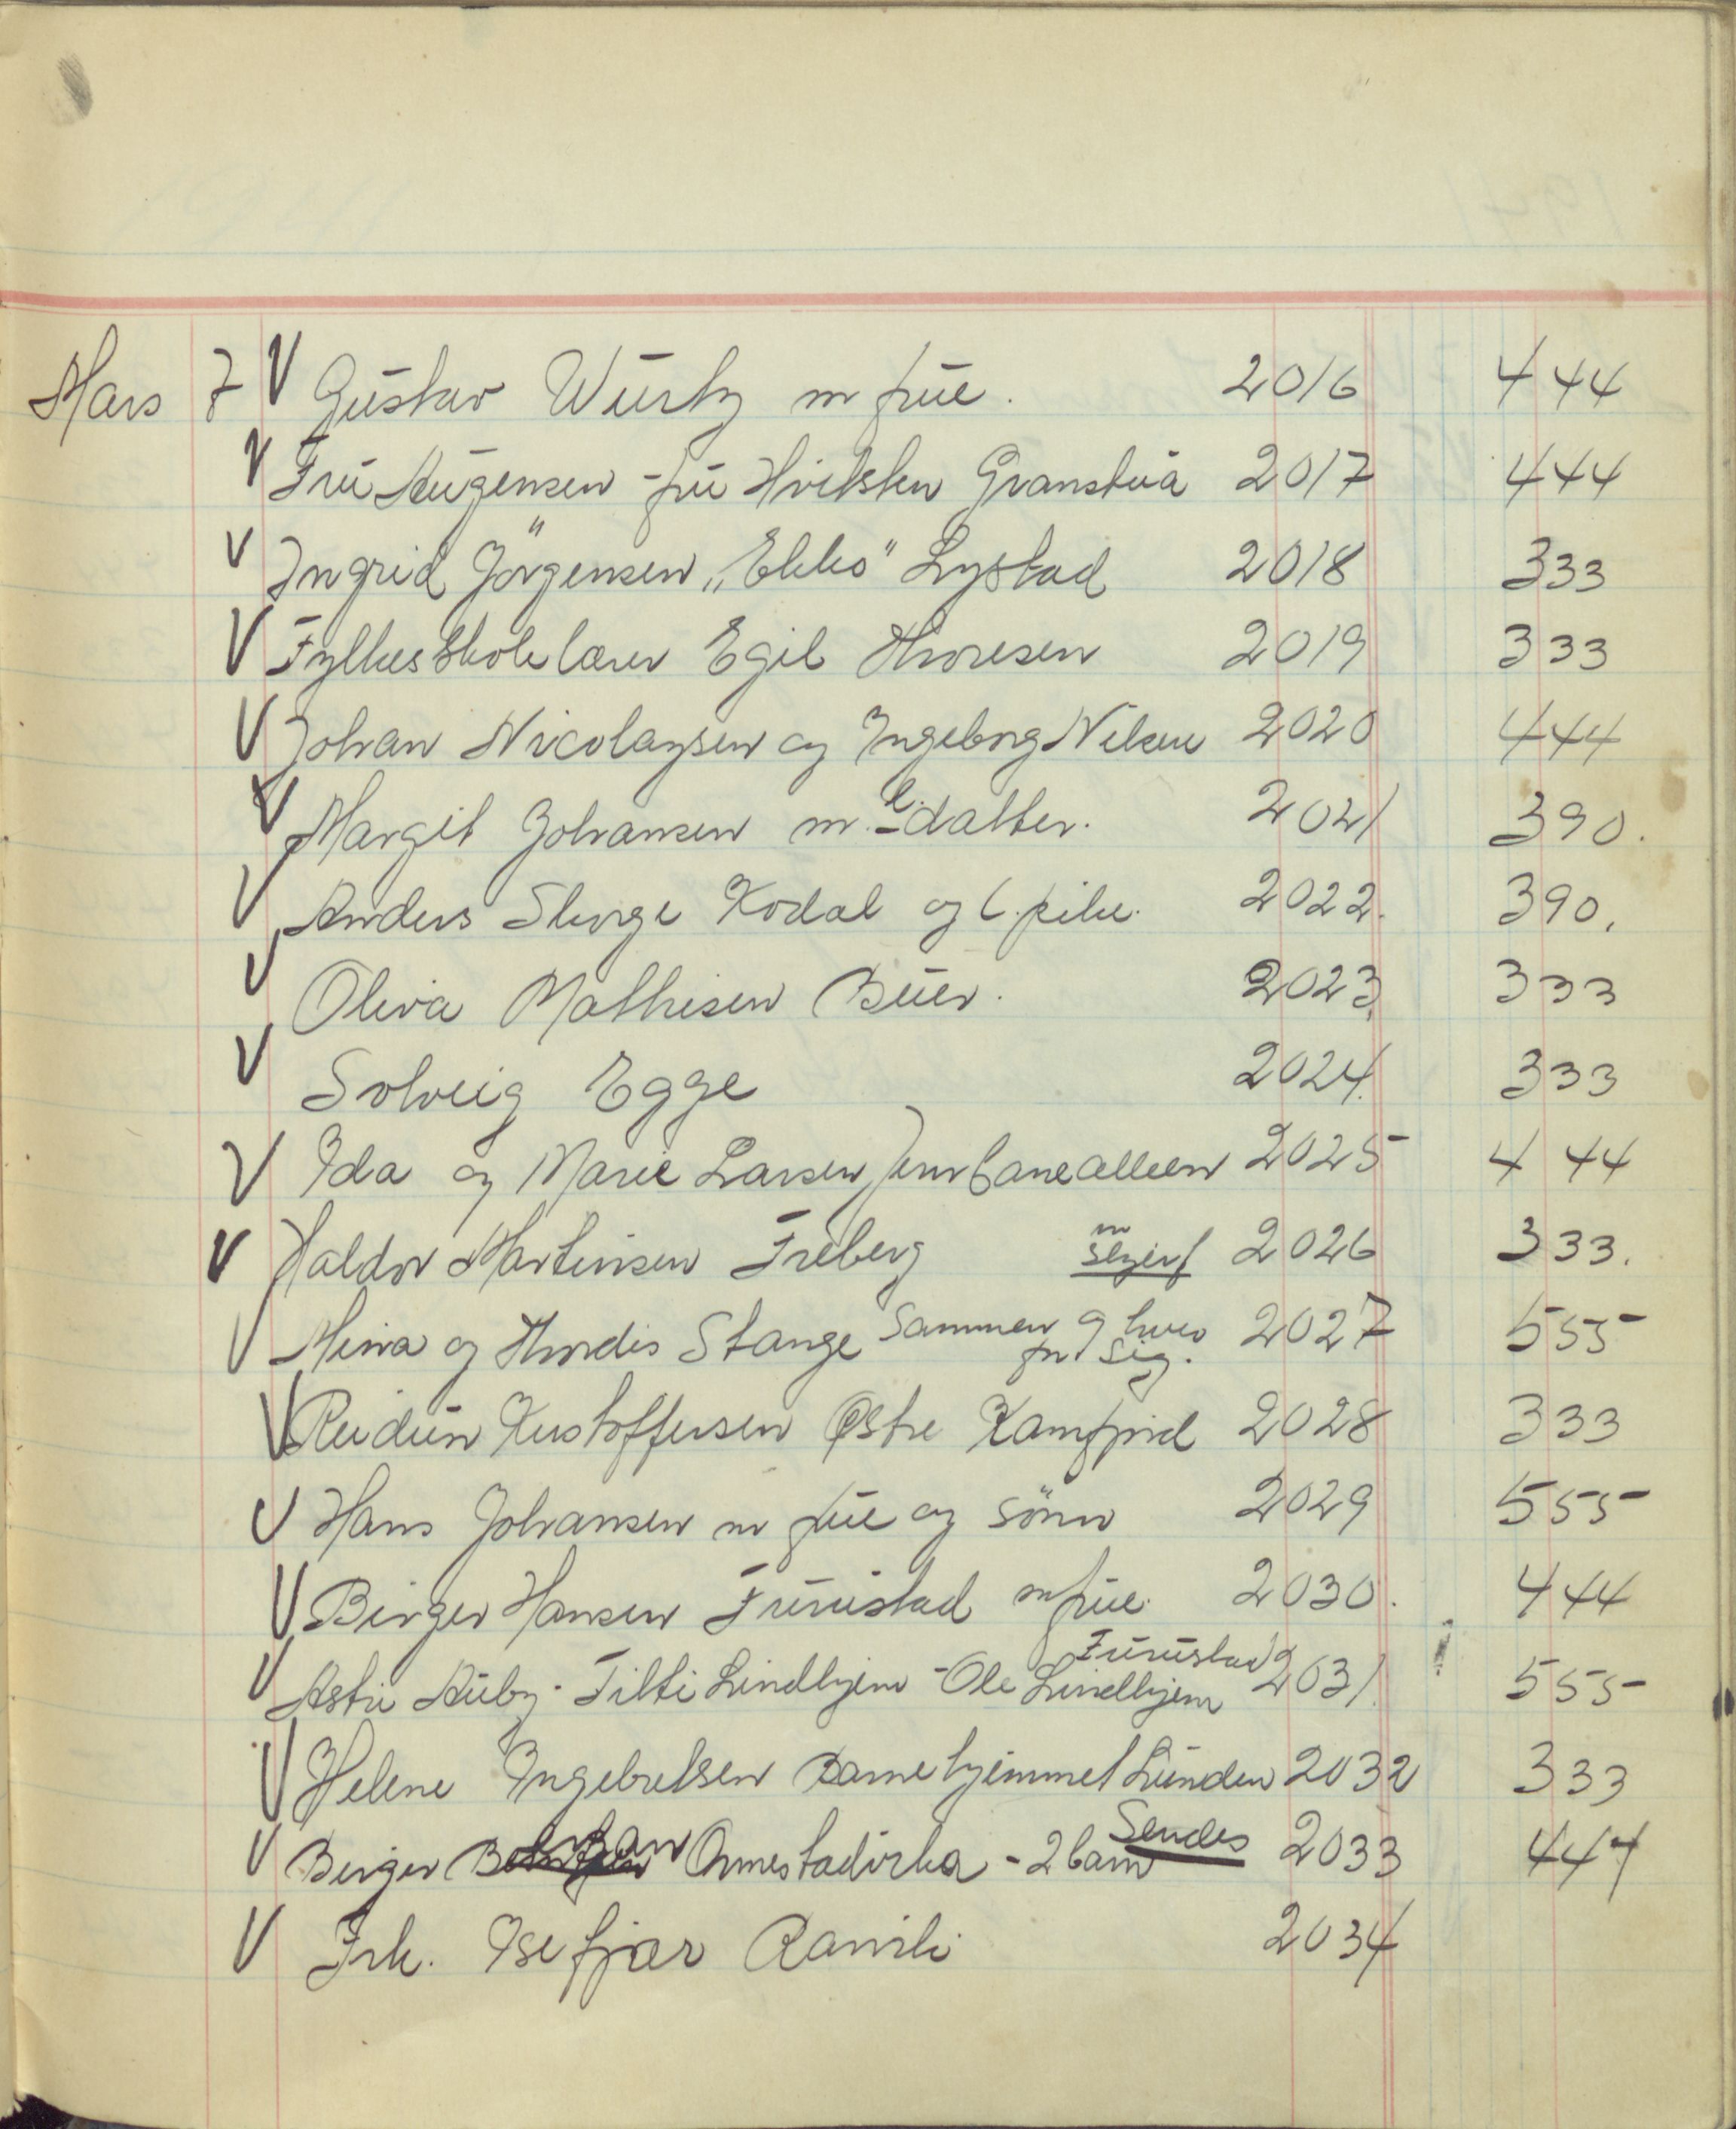 Mars 7 V Gustav Wurtz m frue. 2016 444
V Fru Augensen - fru Hvitsten Granstua 2017 444
V Ingrid Jörgensen „Ekko" Lystad 2018 333
V Fylkesskolelærer Egil Thoresen 2019 333
V Johan Nicolaysen og Ingeborg Nilsen 2020 444
V Margit Johansen m. datter. 2021 390.
V Anders Skorge Kodal og l. pike. 2022. 390.
V Olivia Mathisen Buer. 2023. 333
V Solveig Egge 2024. 333
V Ida og Marie Larsen Jernbanealleen 2025 444
V Haldor Martinsen Freberg m 2026 333.
V Mina og Thordis Stange Sammen og hver for sig. 2027 555
V Reidun Kristoffersen Østre Kamfjord 2028 333
V Hans Johansen m frue og sönn 2029 555
V Birger Hansen Furustad m frue. 2030. 444
Furustad
V Astri Auby - Titti Lindhjem - Ole Lindhjem 2031. 555
V Helene Ingebretsen Barnehjemmet Lunden 2032 333
V Birger Ormestadvika - 2 barn Sendes 2033 444
V Frk. Isefjær Ranvik 2034